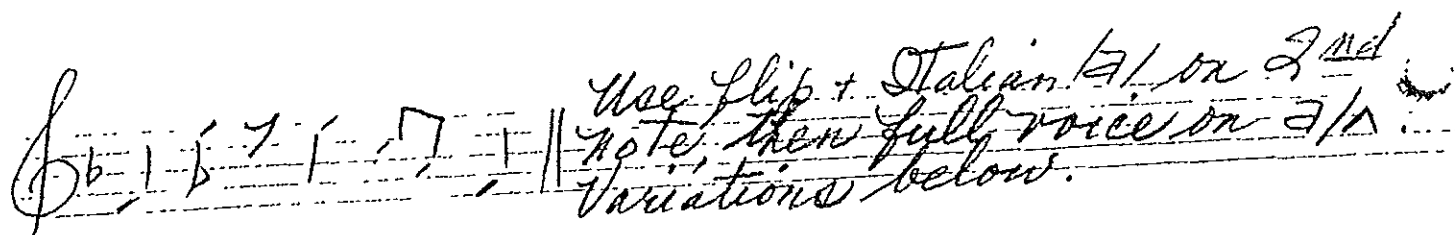 Use flip + Italian /a/ on 2nd
note, then full voice on a/ʌ.
Variations below.